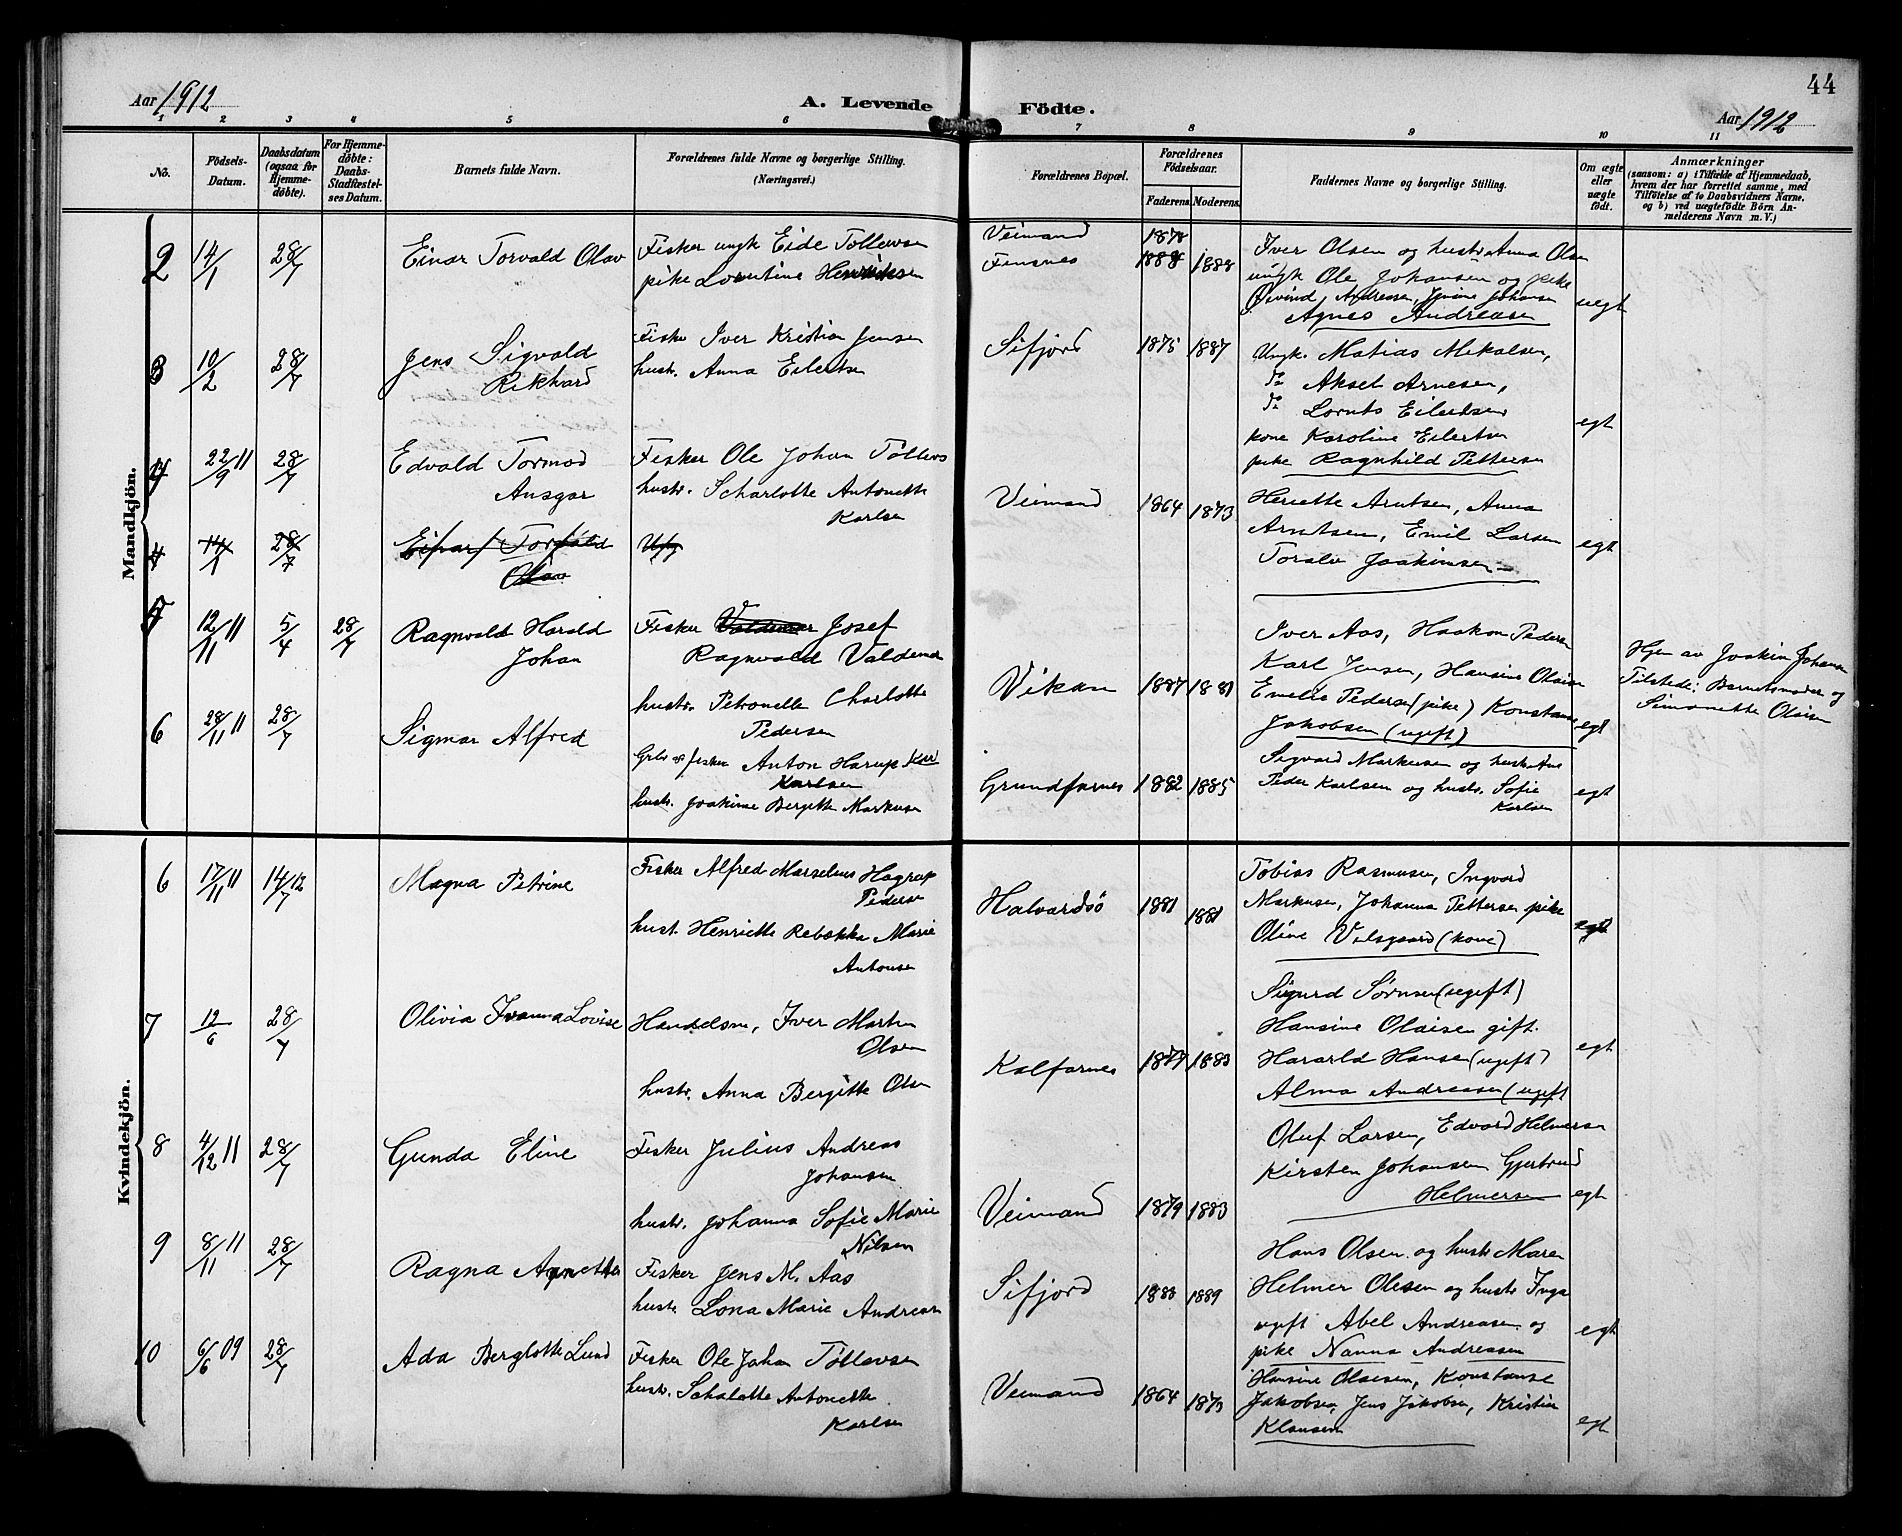 44
Aar 1912
A. Levende Födte.
Aar 1912
1 2 3 4 5 6 7 8 9 10 11
No.
Födsels-
Datum.
Daabsdatum
(ogsaa for
Hjemme-
döbte).
For Hjemme-
döbte:
Daabs-
Stadfæstel-
ses Datum.
Barnets fulde Navn.
Forældrenes fulde Navne og borgerlige Stilling.
(Næringsvei.)
Forældrenes Bopæl.
Forældrenes
Födselsaar.
Faderens. Moderens.
Faddernes Navne og borgerlige Stilling.
Om ægte
eller
uægte
födt.
Anmærkninger
(saasom: a) i Tilfælde af Hjemmedaab,
hvem der har forrettet samme, med
Tilföielse af to Daabsvidners Navne.
og b) ved uægtefödte Börn An-
melderens Navn m. V.)
Mandkjön.
2 14/1 28/7 Einar Torvald Olav
Fisker ungk Eide Tollevsen
pike Lorentine Henriksen
Veimand
Finsnes
1878
1888 1888
Iver Olsen og hustr Anna Olsen
ungk Ole Johansen og pike
Øivind Andreassen, Johansen
Agnes Andreasen
uegt
3 10/2 28/7 Jens Sigvald
Rikhard
Fisker Iver Kristian Jensen
hustr. Anna Eilertsen
Sifjord 1875 1887
Ungk. Matias Mikalsen,
do Aksel Arnesen,
do Lornts Eilertsen
kone Karoline Eilertsen
pike Ragnhild Pettersen
egt
4 22/9 11 28/7 Edvald Tormod
Ansgar
Fisker Ole Johan Tollevs
hustr. Scharlotte Antonette
Karlsen
Veimand 1864 1873
Heriette Arntsen, Anna
Arntsen, Emil Larsen
Toralv Joakimsen
egt
4 14/1 28/7 Einar Torvald
Olav
Ug
5 12/11 11 5/4 28/7 Ragnvald Harald
Johan
Fisker Valdemar Josef
Ragnvald Valdemar
hustr. Petronelle Charlotte
Pedersen
Vikan 1887 1881
Iver Aas, Haakon Pedersen
Karl Jensen, Hansine Olaisen
Emelie Pedersen (pike) Konstanse
Jakobsen (ugift)
egt
Hjem av Joakim Johansen
Tilstede: Barnets moder og
Simonette Olaisen
6 28/11 11 28/7 Sigmar Alfred
Gbr og fisker Anton Harup Karl
Karlsen
hustr. Joakime Bergitte Markusen
Grundfarnes 1882 1885
Sigvard Markusen og hustr Ane
Peder Karlsen og hustr. Sofie
Karlsen
egt
Kvindekjön.
6 17/11 11 14/7 12 Magna Petrine
Fisker Alfred Marselius Hagrup
Pedersen
hust. Henriette Rebekka Marie
Antonsen
Halvardsö 1881 1881
Tobias Rasmusen, Ingvard
Markusen, Johanna Pettersen pike
Oline Valsgaard (kone)
egt
7 12/6 28/7 Olivia Ivanna Lovise
Handelsm, Iver Martin
Olsen
hustr. Anna Bergitte Olsen
Kalfarnes 1877 1883
Sigurd Sørnsen (ugift)
Hansine Olaisen gift.
Hararld Hansen (ugift)
Alma Andreassen (ugift
egt
8 4/12 11 28/7 Gunda Eline
Fisker Julius Andreas
Johansen
hustr. Johanna Sofie Marie
Nilsen
Veimand 1879 1883
Oluf Larsen, Edvard Helmersen
Kirsten Johansen Gjertrud
Helmersen
egt
9 8/11 11 28/7 Ragna Agnethe
Fisker Jens M. Aas
hustr. Lona Marie Andreasen
Sifjord 1883 1889
Hans Olsen og hustr Maren
Helmer Olesen og hustr Inga
ugift Abel Andreasen og
pike Nanna Andreassen
egt
10 6/6 09 28/7 Ada Berglotte Lund
Fisker Ole Johan Töllevsen
hustr. Schalotte Antonette
Karlsen
Veimand 1864 1873
Hansine Olaisen, Konstanse
Jakobsen, Jens Jakobsen, Kristian
Klausen
egt